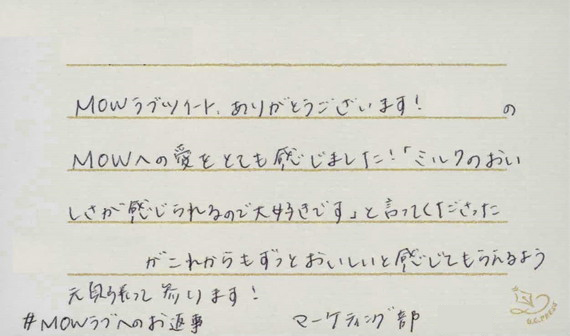 MOWラブツイート、ありがとうございます! の
MOWへの愛をとても感じました!「ミルクのおい
しさが感じられるので大好きです」と言ってくださった
がこれからもずっとおいしいと感じてもらえるよう
元気張って参ります!
#MOWラブへのお返事 マーケティング部